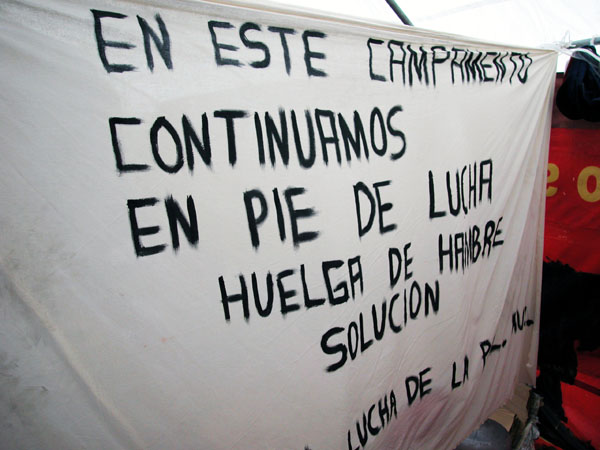 EN ESTE CAMPAMENTO
CONTINUAMOS
EN PIE DE LUCHA
HUELGA DE HAMBRE
SOLUCION
LUCHA DE LA